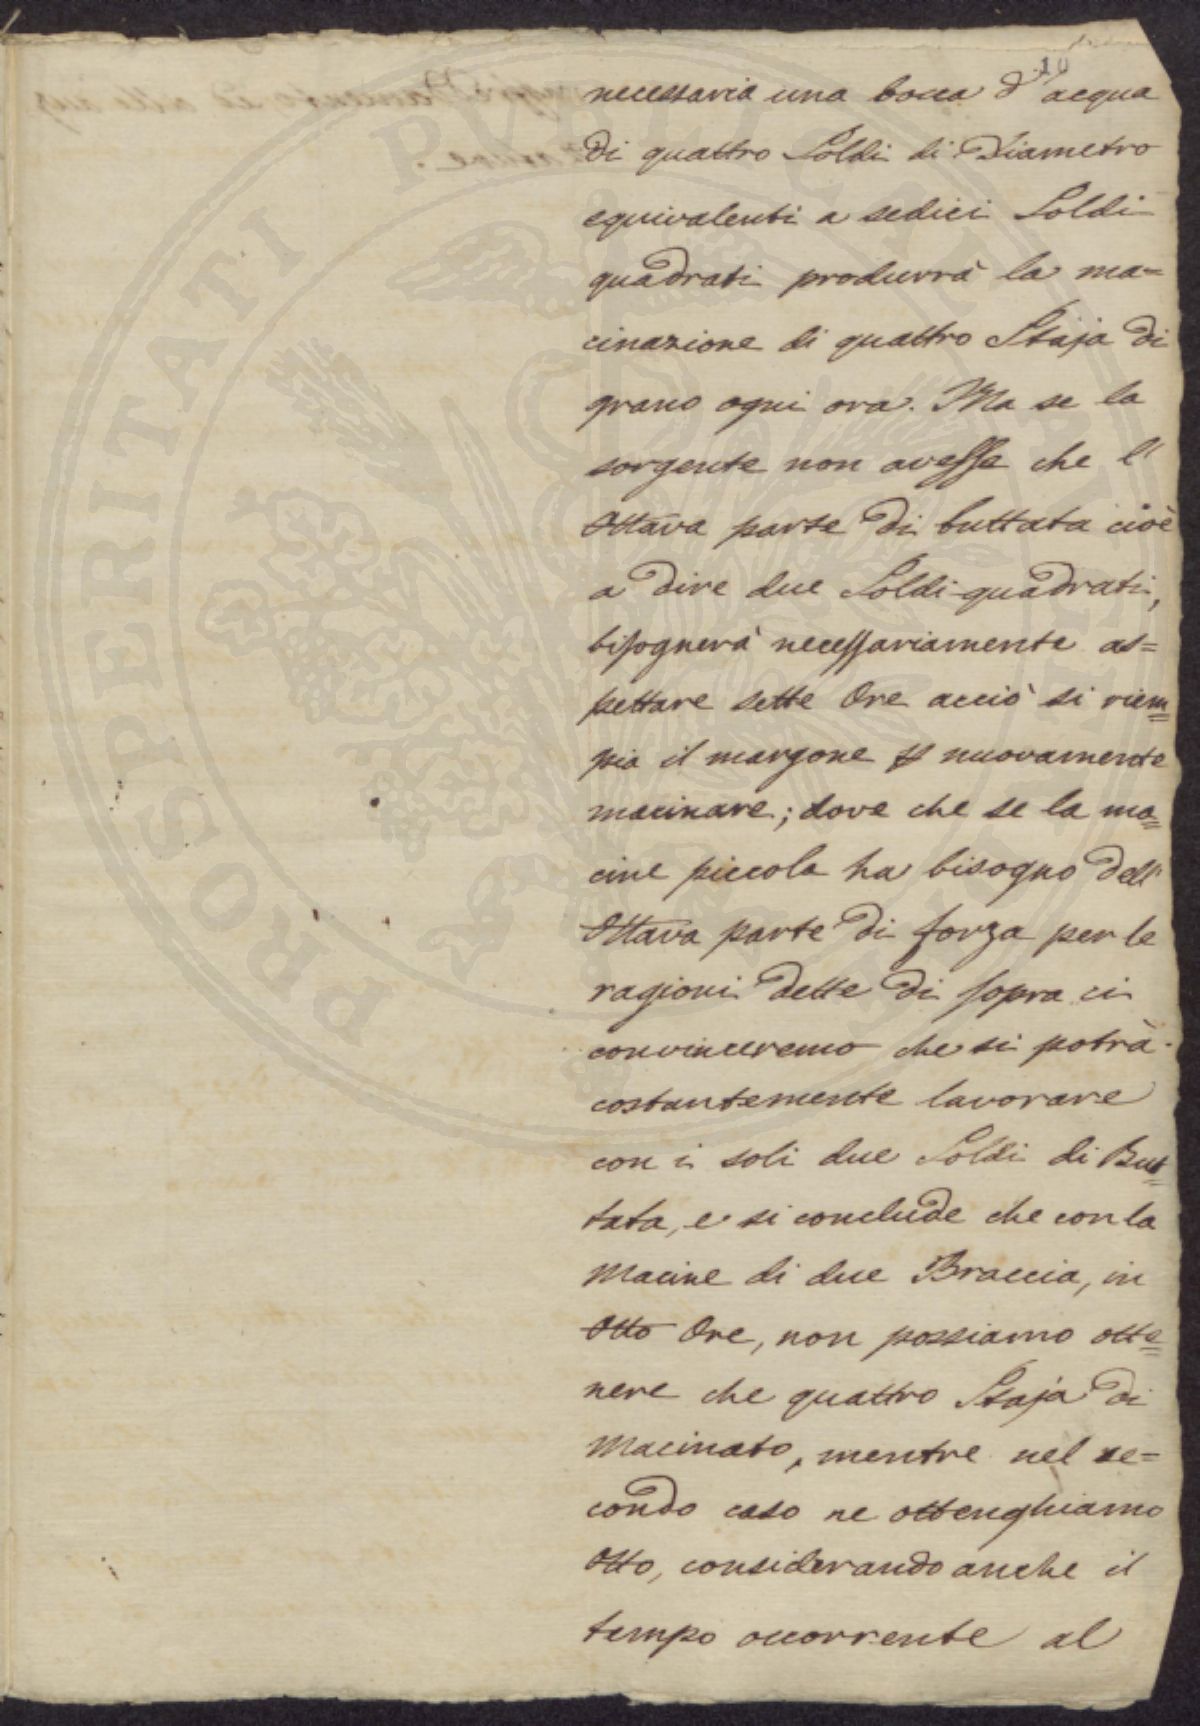 10
necessaria una bocca d'acqua
di quattro Soldi di Diametro
equivalenti a sedici Soldi
quadrati produrrà la ma=
cinazione di quattro Staja di
grano ogni ora. Ma se la
sorgente non avesse che l'
Ottava parte di buttata cioè
a dire due Soldi quadrati,
bisognerà necessariamente as=
pettare sette Ore acciò si riem=
pia il margone p nuovamente
macinare; dove che se la ma=
cine piccola ha bisogno dell'
Ottava parte di forza per le
ragioni dette di sopra ci
convinceremo che si potrà
costantemente lavorare
con i soli due Soldi di But=
tata, e si conclude che con la
Macine di due Braccia, in
Otto Ore, non possiamo otte=
nere che quattro Staja di
Macinato, mentre nel se=
condo caso ne ottenghiamo
Otto, considerando anche il
tempo occorrente al
PROSPERITATI PUBLICAE